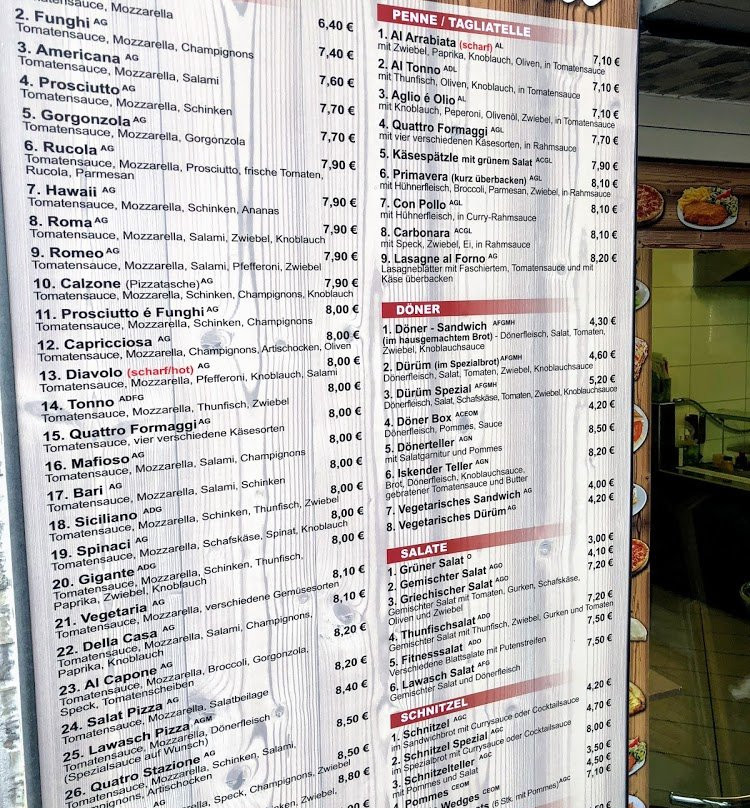 Tomatensauce, Mozzarella 6,40 €
2. Funghi AG 7,40 €
Tomatensauce, Mozzarella, Champignons
3. Americana AG 7,60 €
Tomatensauce, Mozzarella, Salami
4. Prosciutto AG 7,70 €
Tomatensauce, Mozzarella, Schinken
5. Gorgonzola AG 7,70 €
Tomatensauce, Mozzarella, Gorgonzola
6. Rucola AG 7,90 €
Tomatensauce, Mozzarella, Prosciutto, frische Tomaten,
Rucola, Parmesan
7. Hawaii AG 7,90 €
Tomatensauce, Mozzarella, Schinken, Ananas
8. Roma AG 7,90 €
Tomatensauce, Mozzarella, Salami, Zwiebel, Knoblauch
9. Romeo AG 7,90 €
Tomatensauce, Mozzarella, Salami, Pfefferoni, Zwiebel
10. Calzone (Pizzatasche) AG 7,90 €
Tomatensauce, Mozzarella, Schinken, Champignons, Knoblauch
11. Prosciutto é Funghi AG 8,00 €
Tomatensauce, Mozzarella, Schinken, Champignons
12. Capricciosa AG 8,00 €
Tomatensauce, Mozzarella, Champignons, Artischocken, Oliven
13. Diavolo (scharf/hot) AG 8,00 €
Tomatensauce, Mozzarella, Pfefferoni, Knoblauch, Salami
14. Tonno ADFG 8,00 €
Tomatensauce, Mozzarella, Thunfisch, Zwiebel
15. Quattro Formaggi AG 8,00 €
Tomatensauce, vier verschiedene Käsesorten
16. Mafioso AG 8,00 €
Tomatensauce, Mozzarella, Salami, Champignons
17. Bari AG 8,00 €
Tomatensauce, Mozzarella, Salami, Schinken
18. Siciliano ADG 8,00 €
Tomatensauce, Mozzarella, Schinken, Thunfisch, Zwiebel
19. Spinaci AG 8,00 €
Tomatensauce, Mozzarella, Schafskäse, Spinat, Knoblauch
20. Gigante ADG 8,00 €
Tomatensauce, Mozzarella, Schinken, Thunfisch,
Paprika, Zwiebel, Knoblauch
21. Vegetaria AG 8,10 €
Tomatensauce, Mozzarella, verschiedene Gemüsesorten
22. Della Casa AG 8,10 €
Tomatensauce, Mozzarella, Salami, Champignons,
Paprika, Knoblauch
23. Al Capone AG 8,20 €
Tomatensauce, Mozzarella, Broccoli, Gorgonzola,
Speck, Tomatenscheiben
24. Salat Pizza AG 8,20 €
Tomatensauce, Mozzarella, Salatbeilage
25. Lawasch Pizza AGM 8,40 €
Tomatensauce, Mozzarella, Dönerfleisch
(Spezialsauce auf Wunsch)
26. Quatro Stazione AG 8,50 €
Tomatensauce, Mozzarella, Schinken, Salami,
Champignons, Artischocken
AG 8,50 €
Mozzarella, Speck, Champignons, Zwiebel
8,80 €
PENNE / TAGLIATELLE
1. Al Arrabiata (scharf) AL 7,10 €
mit Zwiebel, Paprika, Knoblauch, Oliven, in Tomatensauce
2. Al Tonno ADL 7,10 €
mit Thunfisch, Oliven, Knoblauch, in Tomatensauce
3. Aglio é Olio AL 7,10 €
mit Knoblauch, Peperoni, Olivenöl, Zwiebel, in Tomatensauce
4. Quattro Formaggi AGL 7,70 €
mit vier verschiedenen Käsesorten, in Rahmsauce
5. Käsespätzle mit grünem Salat ACGL 7,90 €
6. Primavera (kurz überbacken) AGL 8,10 €
mit Hühnerfleisch, Broccoli, Parmesan, Zwiebel, in Rahmsauce
7. Con Pollo AGL 8,10 €
mit Hühnerfleisch, in Curry-Rahmsauce
8. Carbonara ACGL 8,10 €
mit Speck, Zwiebel, Ei, in Rahmsauce
9. Lasagne al Forno AG 8,20 €
Lasagneblätter mit Faschiertem, Tomatensauce und mit
Käse überbacken
DÖNER
1. Döner - Sandwich AFGMH 4,30 €
(im hausgemachtem Brot) - Dönerfleisch, Salat, Tomaten,
Zwiebel, Knoblauchsauce
2. Dürüm (im Spezialbrot) AFGMH 4,60 €
Dönerfleisch, Salat, Tomaten, Zwiebel, Knoblauchsauce
3. Dürüm Spezial AFGMH 5,20 €
Dönerfleisch, Salat, Schafskäse, Tomaten, Zwiebel, Knoblauchsauce
4. Döner Box ACEOM 4,20 €
Dönerfleisch, Pommes, Sauce
5. Dönerteller AGN 8,50 €
mit Salatgarnitur und Pommes
6. Iskender Teller AGN 8,20 €
Brot, Dönerfleisch, Knoblauchsauce,
gebratener Tomatensauce und Butter
7. Vegetarisches Sandwich AG 4,00 €
8. Vegetarisches Dürüm AG 4,20 €
SALATE
1. Grüner Salat O 3,00 €
2. Gemischter Salat AGO 4,10 €
3. Griechischer Salat AGO 7,20 €
Gemischter Salat mit Tomaten, Gurken, Schafskäse,
Oliven und Zwiebel
4. Thunfischsalat ADO 7,20 €
Gemischter Salat mit Thunfisch, Zwiebel, Gurken und Tomaten
5. Fitnesssalat ADO 7,50 €
Verschiedene Blattsalate mit Putenstreifen
6. Lawasch Salat AFG 7,50 €
Gemischter Salat und Dönerfleisch
SCHNITZEL
1. Schnitzel AGC 4,20 €
im Sandwichbrot mit Currysauce oder Cocktailsauce
2. Schnitzel Spezial AGC 4,70 €
im Spezialbrot mit Currysauce oder Cocktailsauce
3. Schnitzelteller AGC 8,00 €
mit Pommes und Salat
4. Pommes CEOM 3,50 €
Wedges CEOM 4,50 €
(6 Stk. mit Pommes) AGC 7,10 €